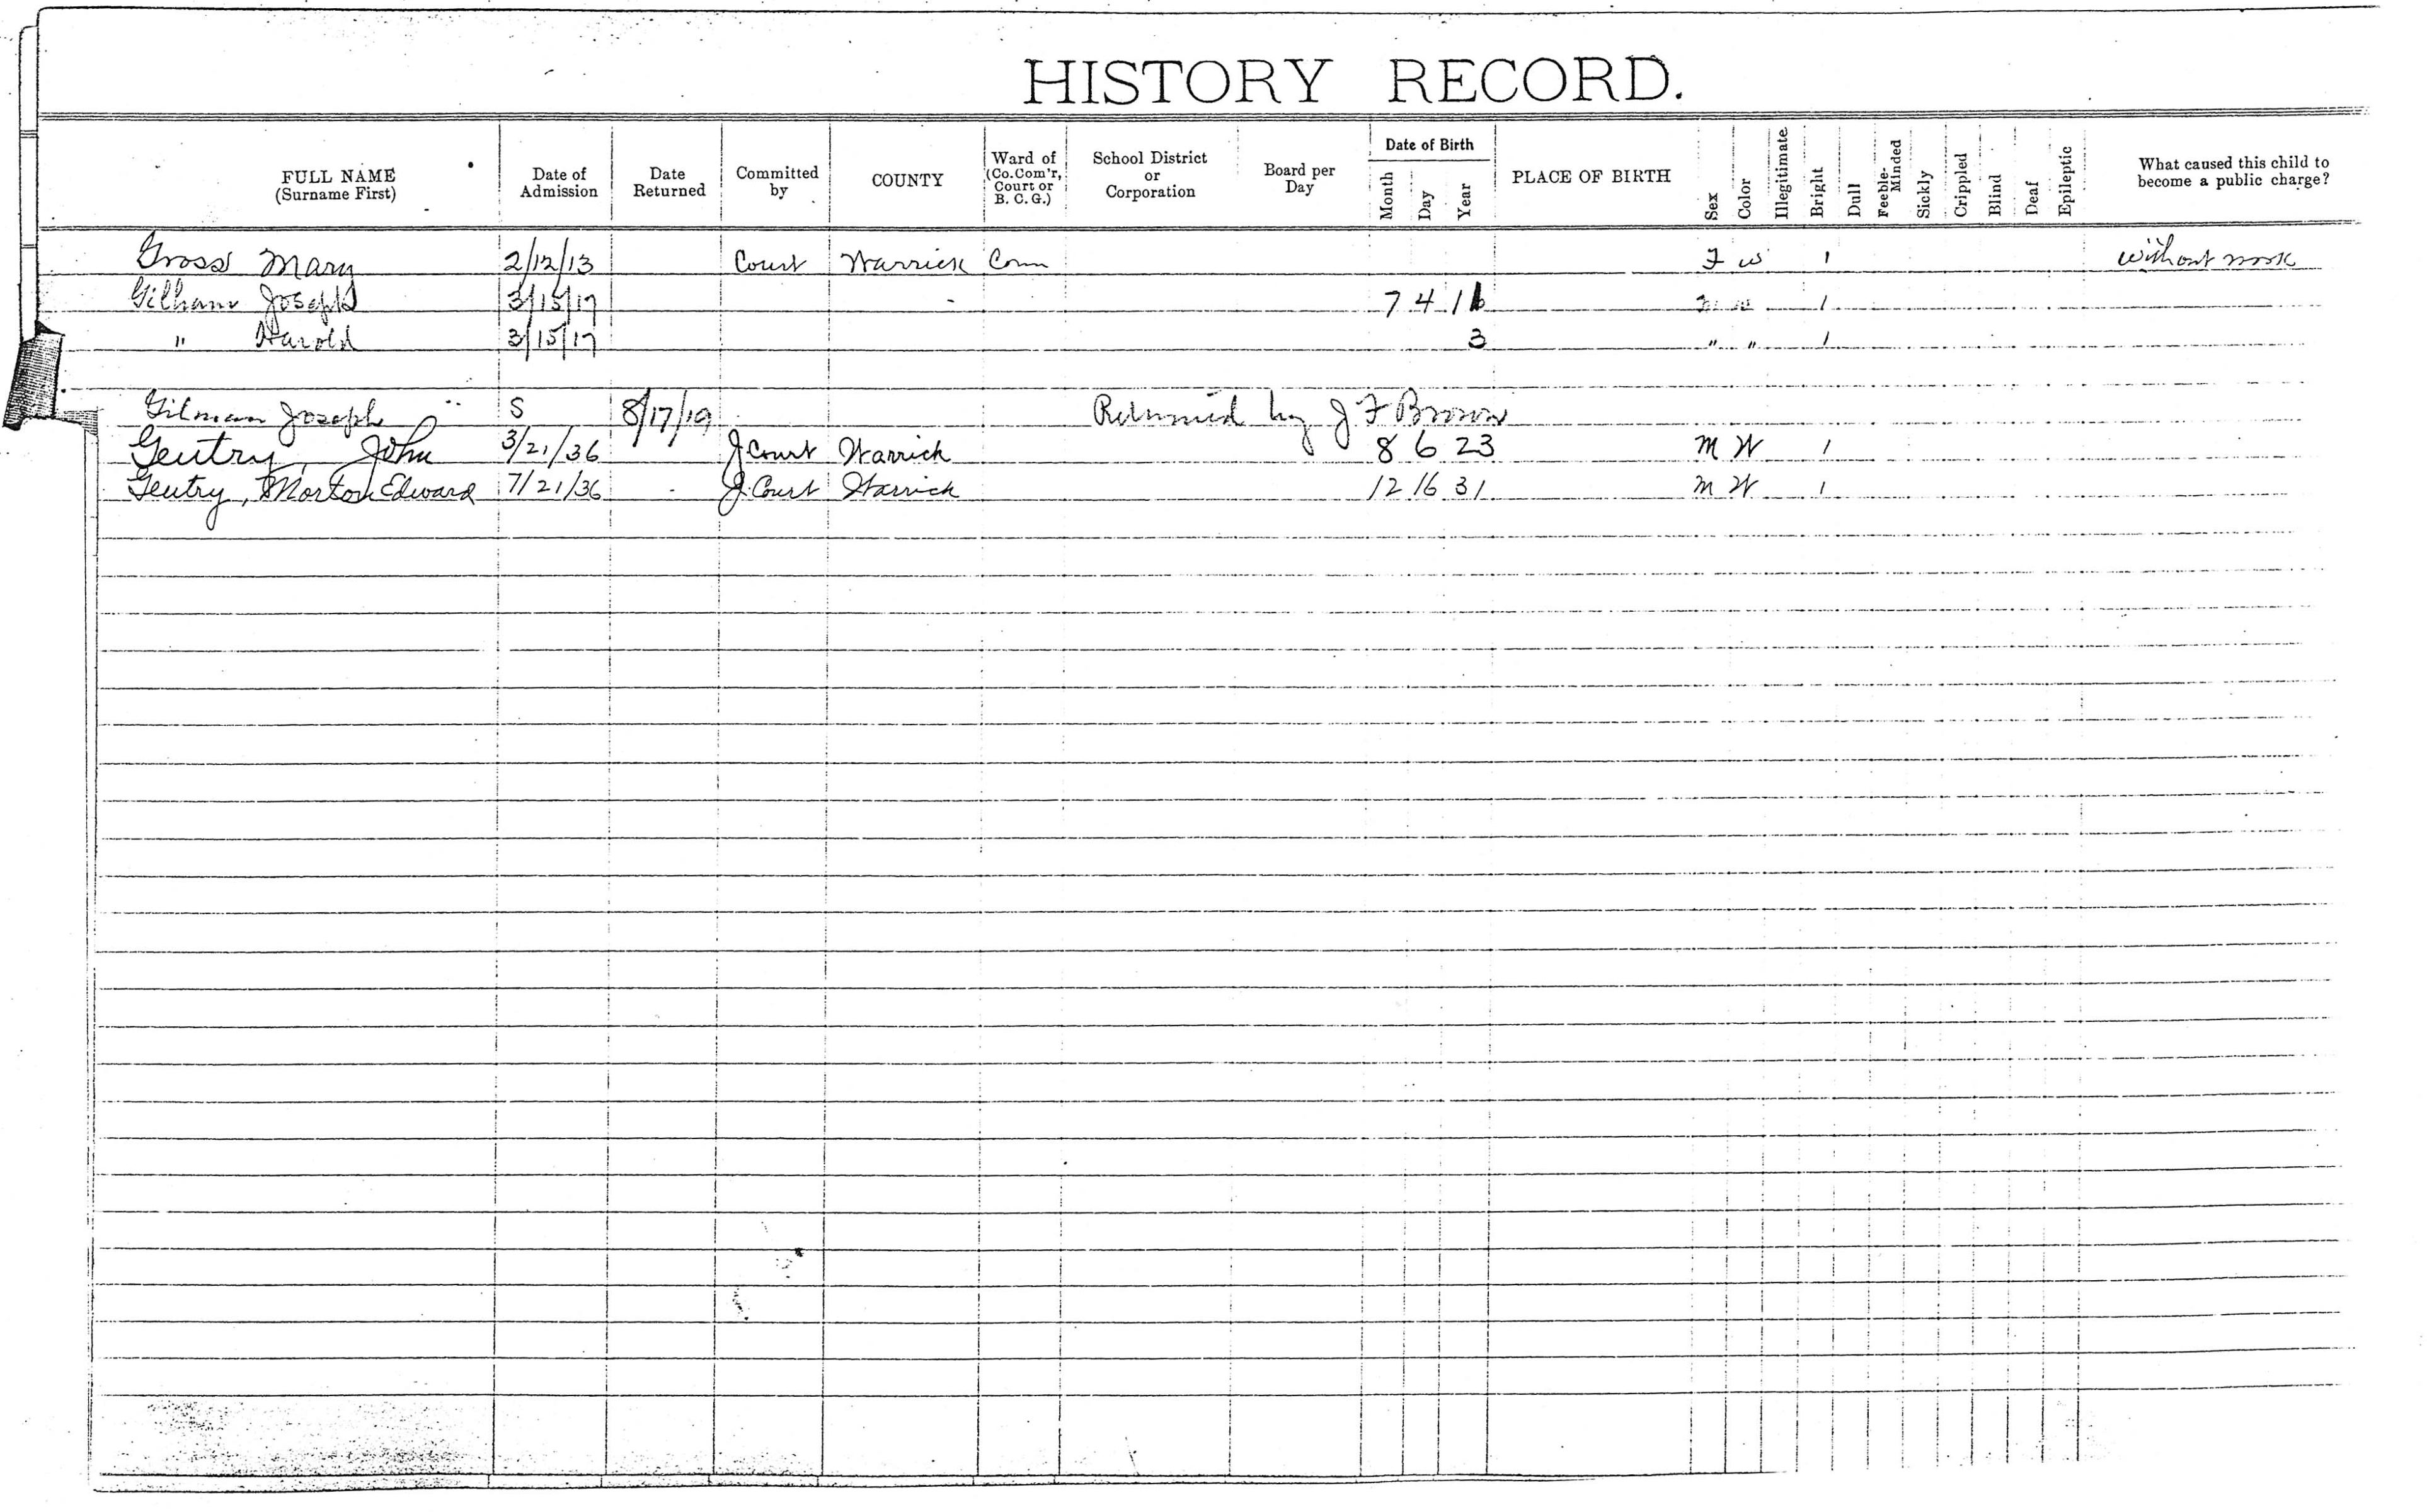 HISTORY RECORD.
FULL NAME (Surname First) Date of Admission Date Returned Committed by COUNTY Ward of (Co. Com'r, Court or B. C. G.) School District or Corporation Board per Day Date of Birth Month Day Year PLACE OF BIRTH Sex Color Illegitimate Bright Dull Feeble-Minded Sickly Crippled Blind Deaf Epileptic What caused this child to become a public charge?
Gross Mary 2/12/13 Court Warrick Com F W 1 without
Joseph 3/15/17 7 4 1 1
" Harold 3/15/17 3 " " 1
Gilman Joseph S 8/17/19 Returned by J F Brown
Gentry, John 3/21/36 J Court Warrick 8 6 23 M W 1
Gentry, Morton Edward 7/21/36 J. Court Warrick 12 16 31 M W 1